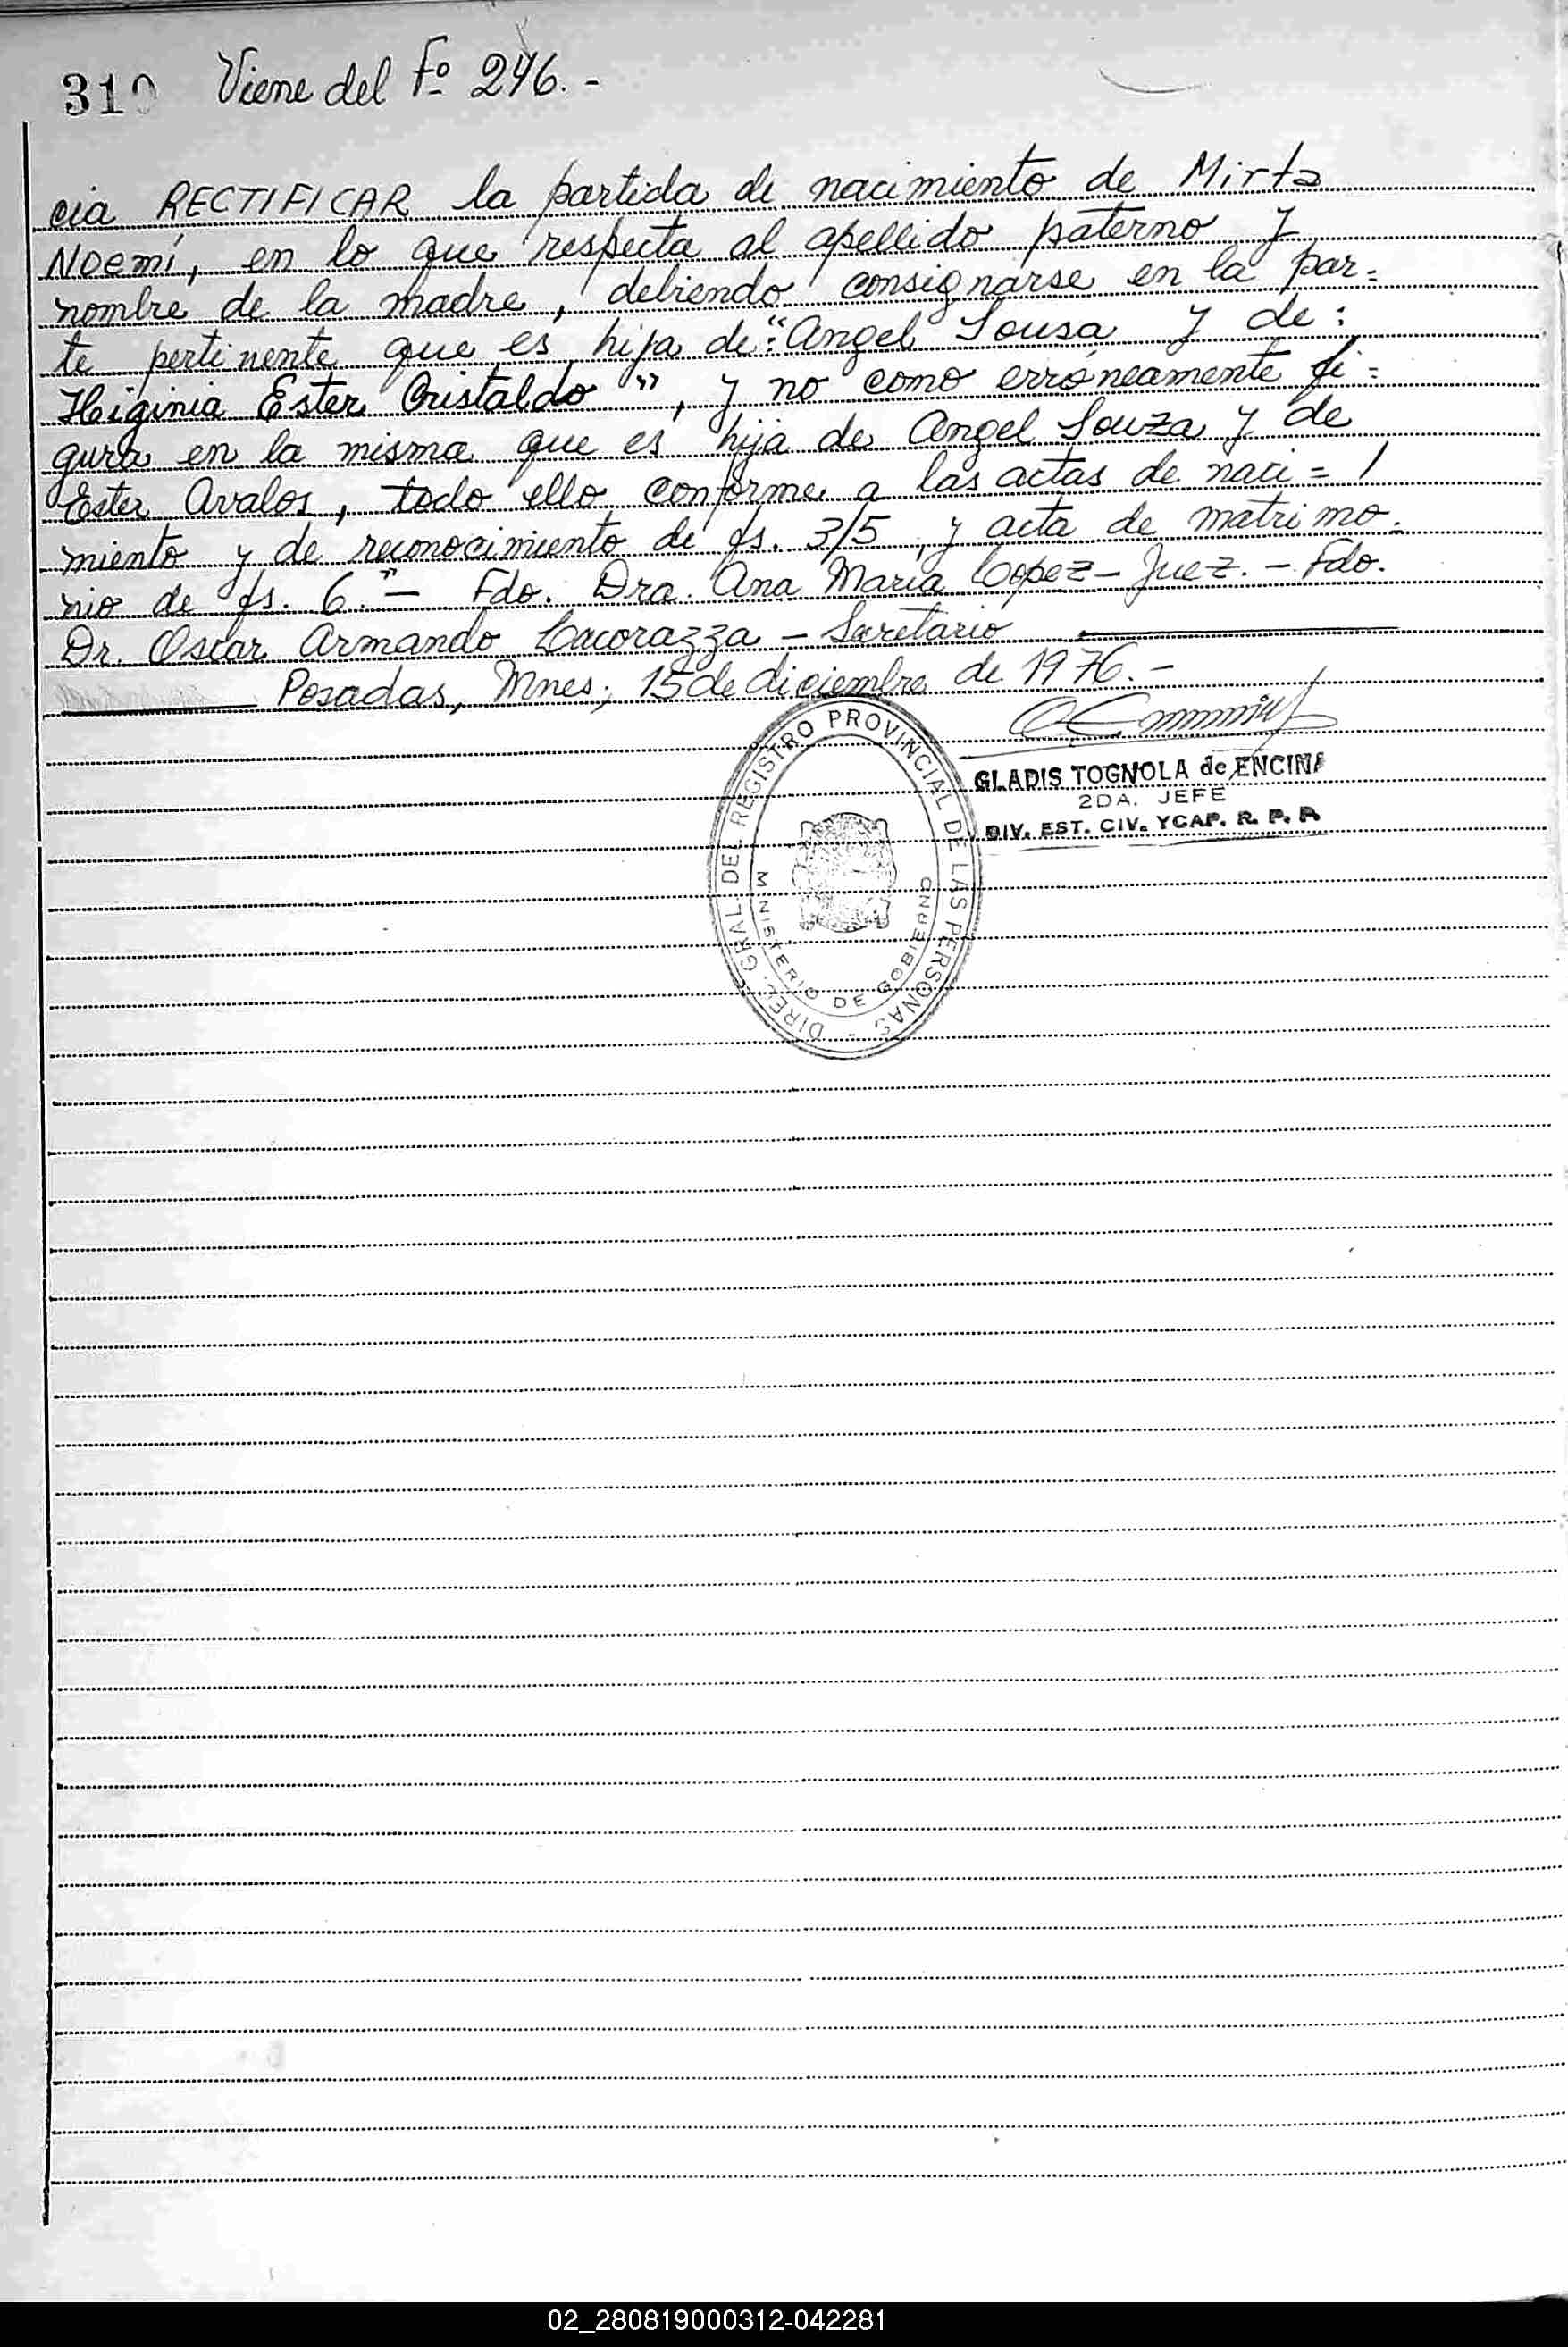 310 Viene del Fº 246.-
cia RECTIFICAR la partida de nacimiento de Mirta
Noemí, en lo que respecta al apellido paterno y
nombre de la madre, debiendo consignarse en la par=
te pertinente que es hija de: "Angel Sousa y de:
Higinia Ester Cristaldo", y no como erróneamente fi=
gura en la misma que es hija de Angel Souza y de
Ester Avalos, todo ello conforme a las actas de naci= /
miento y de reconocimiento de fs. 3/5, y acta de matrimo=
nio de fs. 6."- Fdo. Dra. Ana Maria Lopez- Juez.- Fdo.
Dr. Oscar Armando Cacorazza - Secretario
Posadas, Mnes; 15 de diciembre de 1976.-
GLADIS TOGNOLA de ENCINA
2DA. JEFE
DIV. EST. CIV. YCAP. R. P. P.
DIREC. GRAL. DEL REGISTRO PROVINCIAL DE LAS PERSONAS -
MINISTERIO DE GOBIERNO
02_280819000312-042281